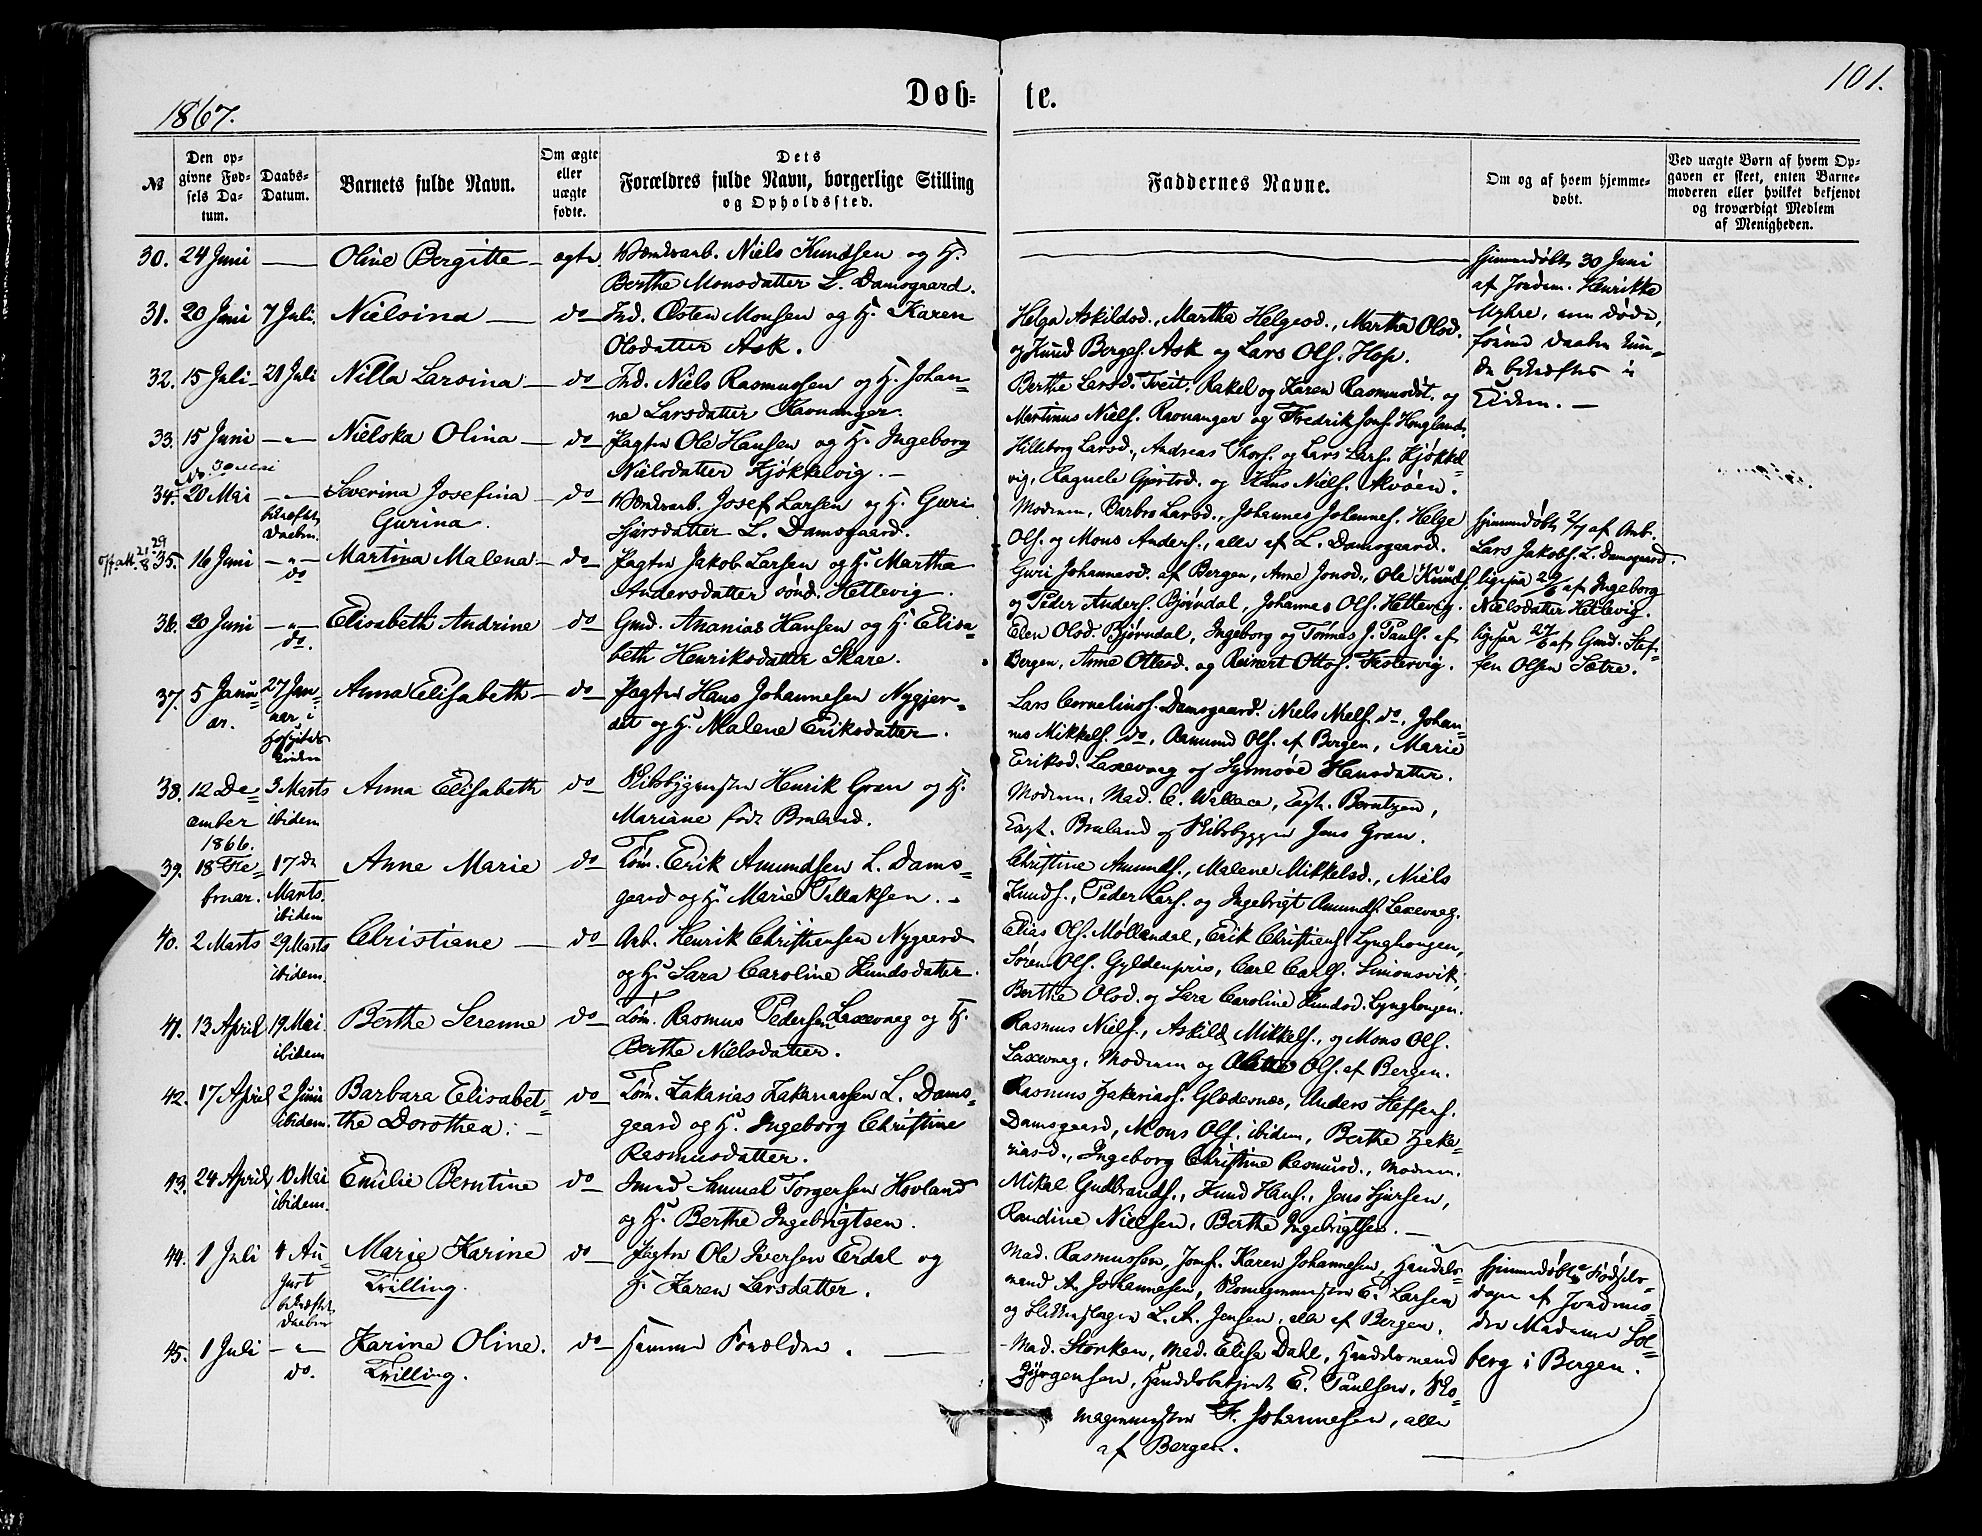 1867.
Døb-
te.
101.
№
Den op-
givne Fød-
sels Da-
tum.
Daabs-
Datum.
Barnets fulde Navn.
Om ægte
eller
uægte
fødte.
Dets
Forældres fulde Navn, borgerlige Stilling
og Opholdssted.
Faddernes Navne.
Om og af hvem hjemme-
døbt.
Ved uægte Børn af hvem Op-
gaven er skeet, enten Barne-
moderen eller hvilket bekjendt
og troværdigt Medlem
af Menigheden.
30. 24 Juni — Oline Bergitte — ægte
Niels Knudsen og H.
Berthe Monsdatter L. Damsgaard.
Hjemmedøbt 30 Juni
af Jordem. Henrikke
Myhre, men døde,
førend Daaben kun-
de bekræftes i
Kirken. —
31. 20 Juni 7 Juli. Nielsina — do
Ind. Østen Monsen og H. Karen
Olsdatter Ask.
Helga Askildsd., Martha Helgesd., Martha Olsd.
og Knud Bergs. Ask og Lars Ols. Hop.
32. 15 Juli 21 Juli Nilla Larsina — do
Ind. Niels Rasmussen og H. Johan-
ne Larsdatter Ravnanger.
Berthe Larsd. Tveit, Rakel og Karen Rasmusdt. og
Martinus Niels. Ravnanger og Fredrik Jons. Hougland.
33. 15 Juni — " — Nielska Olina — do
Pagter Ole Hansen og H. Ingeborg
Nielsdatter Kjøkkelvig. —
Hilleborg Larsd., Andreas Thors. og Lars Lars. Kjøkkel-
vig, Ragnele Gjertsd. og Hans Niels. Alvøen.
34. 20 Mai — " — bekræftet Daaben. Severina Josefina — do
Gurina.
Josef Larsen og H. Guri
Sjursdatter L. Damsgaard.
Moderen, Barbro Larsd., Johannes Johannes. Helge
Ols. og Mons Anders., alle af L. Damsgaard.
Hjemmedøbt 2/7 af Arb.
Lars Jakobs. L. Damsgaard.
35. 16 Juni — " — do Martina Malena — do
Pagter Jakob Larsen og H. Martha
Andersdatter sønd. Hettevig.
Guri Johannesd. af Bergen, Anne Jonsd., Ole Knuds.
og Peder Anders. Bjørndal, Johannes Ols. Hettevig.
ligesaa 29/6 af Ingeborg
Nielsdatter Hettevig.
36. 20 Juni — " — do. Elisabeth Andrine — do
Gmd. Ananias Hansen og H. Elisa-
beth Henriksdatter Skare.
Elen Olsd. Bjørndal, Ingeborg og Tønnes J. Pauls. af
Bergen, Anne Ottesd. og Reinert Ottos.
ligesaa 27/6 af Gmd. Stef-
fen Olsen Sætre.
37. 5 Janu-
ar. 27 Jan-
uar i
Hospitals
Kirken
Anna Elisabeth — do
Pagter Hans Johannesen Nygjer-
det og H. Malene Eriksdatter.
Lars Corneliuss. Damsgaard. Niels Niels. do, Johan-
nes Mikkels. do, Aamund Ols. af Bergen, Marie
Eriksd. Laxevaag og Hansdatter.
38. 12 De-
cember
1866.
3 Marts
ibidem
Anna Elisabeth do
Henrik Gran og H.
Mariane født Bruland.
Moderen, Mad. C. Wallace, Capt. Berntzen,
Capt. Bruland og Skibsbygger Jens Gran.
39. 18 Fe-
bruar.
17de
Marts.
ibidem
Anne Marie do
Tøm. Erik Amundsen L. Dams-
gaard og H. Marie Tollaksen.
Christine Amunds., Malene Mikkelsd., Niels
Knuds., Peder Lars. og Ingebrigt Amunds. Laxevaag.
40. 2 Marts 29 Marts
ibidem.
Christiane — do
Arb. Henrik Christensen Nygaard
og H. Sara Caroline Knudsdatter.
Elias Ols. Møllendal, Erik Christens. Lynghougen,
Søren Ols. Gyldenpris, Carl Carls. Simonsvik,
Berthe Olsd. og Sara Caroline Knudsd. Lynghougen.
41. 13 April 19 Mai
ibidem
Berthe Serenne do
Tøm. Rasmus Pedersen Laxevaag og H.
Berthe Nielsdatter.
Rasmus Niels., Askild Mikkels., og Mons Ols.
Laxevaag, Moderen og Ols. af Bergen.
42. 17 April 2 Juni
ibidem.
Barbara Elisabet-
the Dorothea. — do
Tøm. Zakarias Zakariassen L. Dams-
gaard og H. Ingeborg Christine
Rasmusdatter.
Rasmus Zakarias. Glædesnæs, Anders Steffens.
Damsgaard, Mons Ols. ibidem, Berthe Zaka-
riasd., Ingeborg Christine Rasmusd., Moderen.
43. 24 April 10 Mai
ibidem.
Emilie Berntine do
Smed Samuel Torgersen Hovland
og H. Berthe Ingebrigtsen.
Mikal Gudbrands., Knud Hans., Jens Sjursen,
Randine Nielsen, Berthe Ingebrigtsen. —
44. 1 Juli 4 Au-
gust
bekræftet
Daaben
Marie Karine do
Trilling.
Pagter Ole Iversen Erdal og
H. Karen Larsdatter.
Mad. Rasmussen, Jomf. Karen Johannesen, Handels-
mand A. Johannesen, Skomagermester E. Larsen
og L. A. Jensen, alle af Bergen.
Hjemmedøbte Fødsels-
dagen af Jordmo-
der Madame Sol-
berg i Bergen.
45. 1 Juli — " — do. Karine Oline. do
Trilling.
samme Forældre. —
Mad. Storken, Mad. Elisa Dahl, Handelsmand
Jørgensen, Handelsbetjent E. Paulsen, Sko-
magermester F. Johannesen, alle
af Bergen.